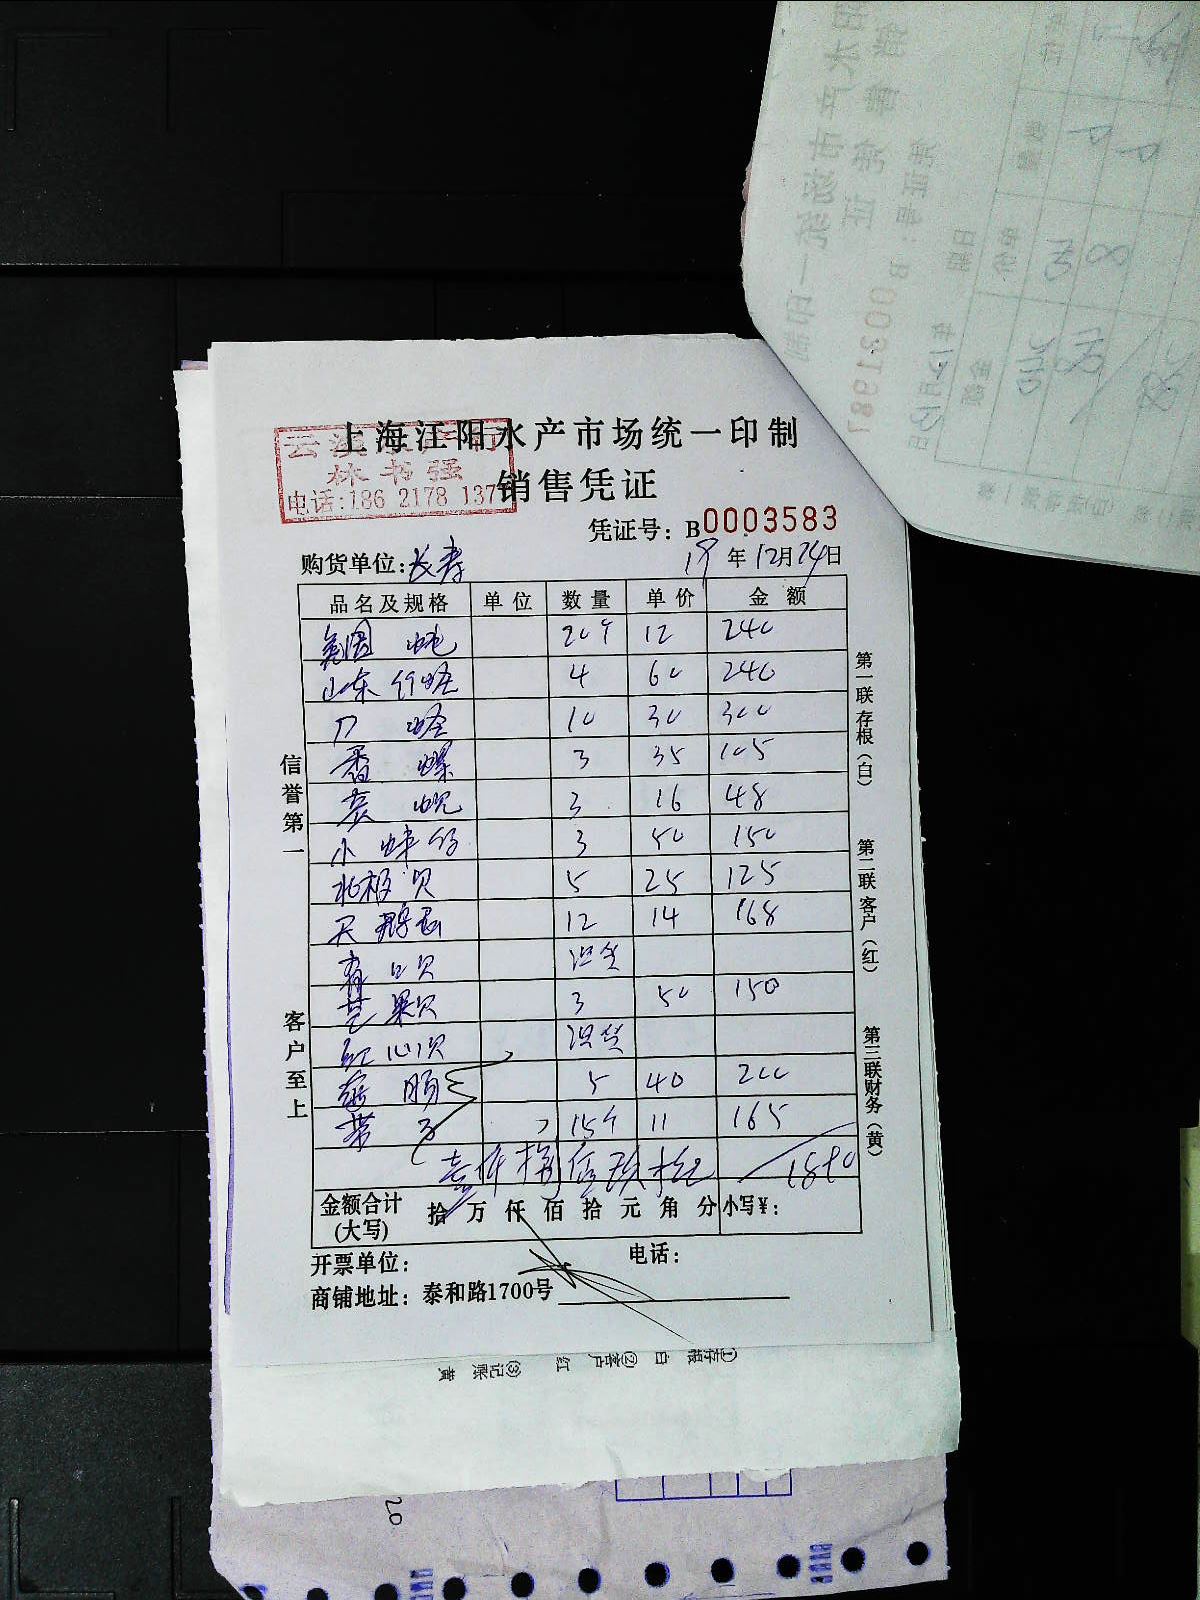 上海江阳水产市场统一印制
林书强
电话:186 2178 137
销售凭证
凭证号: B0003583
购货单位: 长寿 19年12月24日
品名及规格 单位 数量 单价 金额
美国 蚝 20个 12 240
山东 竹蛏 4 60 240
刀 蛏 10 30 300
香 螺 3 35 105
黄 蚬 3 16 48
小 蚌仔 3 50 150
北极贝 5 25 125
天鹅蛋 12 14 168
青口贝 没货
芒果贝 3 50 150
红心贝 没货
海 肠 5 40 200
带 子 15个 11 165
壹仟捌佰玖拾 1890
金额合计 拾 万 仟 佰 拾 元 角 分 小写¥:
(大写)
开票单位: 电话:
商铺地址: 泰和路1700号
信誉第一
客户至上
第一联 存根(白)
第二联 客户(红)
第三联 财务(黄)
①存根 白 ②客户 红 ③记账 黄
B 0031981
20